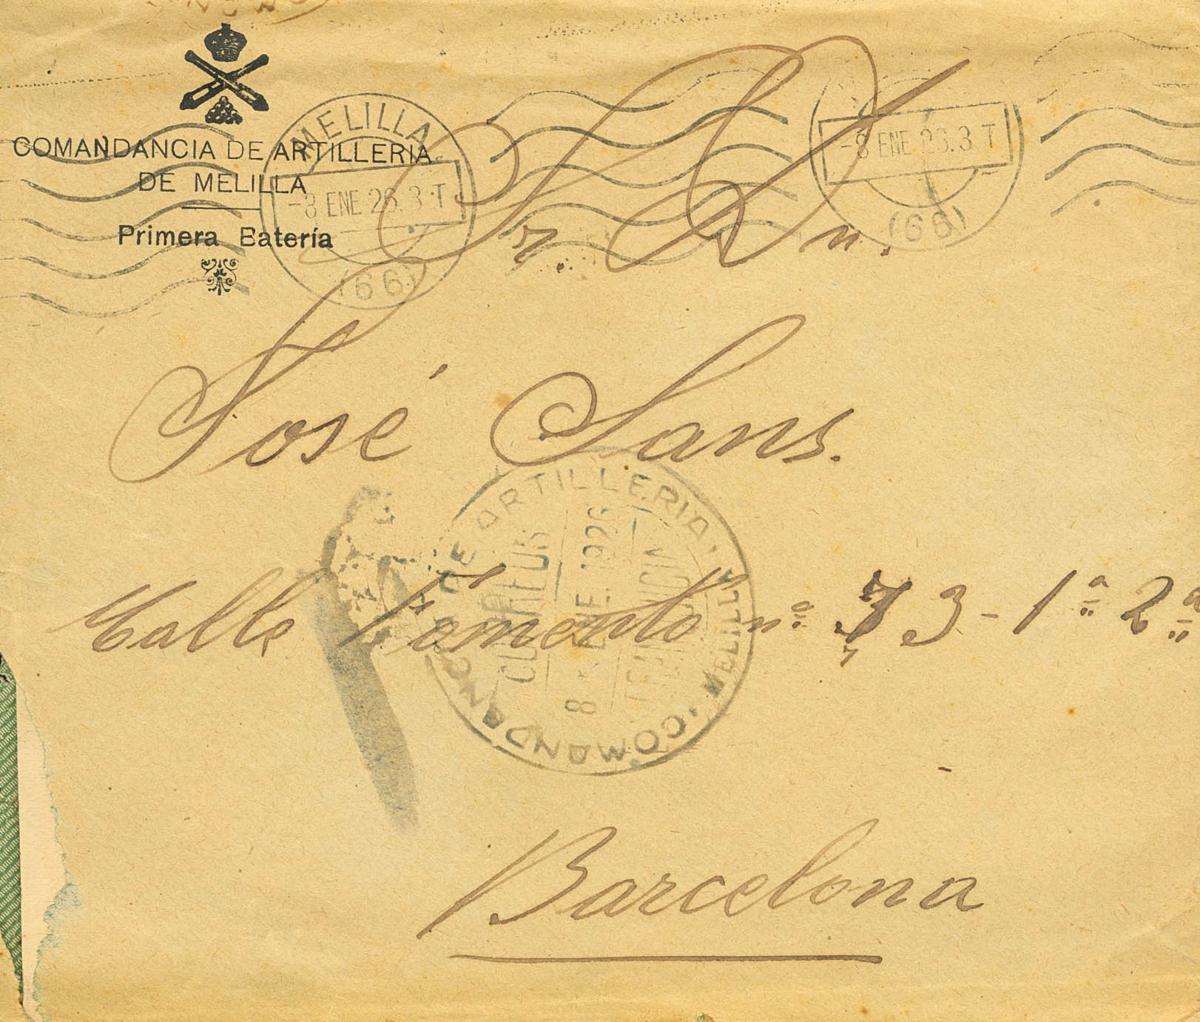 COMANDANCIA DE ARTILLERÍA
DE MELILLA
Primera Batería
MELILLA
-8 ENE 26.3 T
(66)
-8 ENE 26.3 T
(66)
Sr. Dn.
José Sans.
Calle Fomento nº 73-1ª 2ª
COMANDANCIA DE ARTILLERIA · MELILLA ·
CORREOS
8 ENE 1926
FRANQUICIA
Barcelona